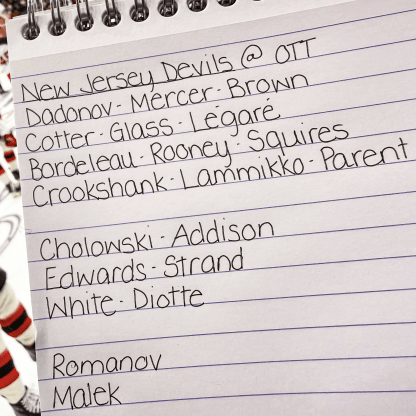 New Jersey Devils @ OTT
Dadonov - Mercer - Brown
Cotter - Glass - Légaré
Bordeleau - Rooney - Squires
Crookshank - Lammikko - Parent
Cholowski - Addison
Edwards - Strand
White - Diotte
Romanov
Malek